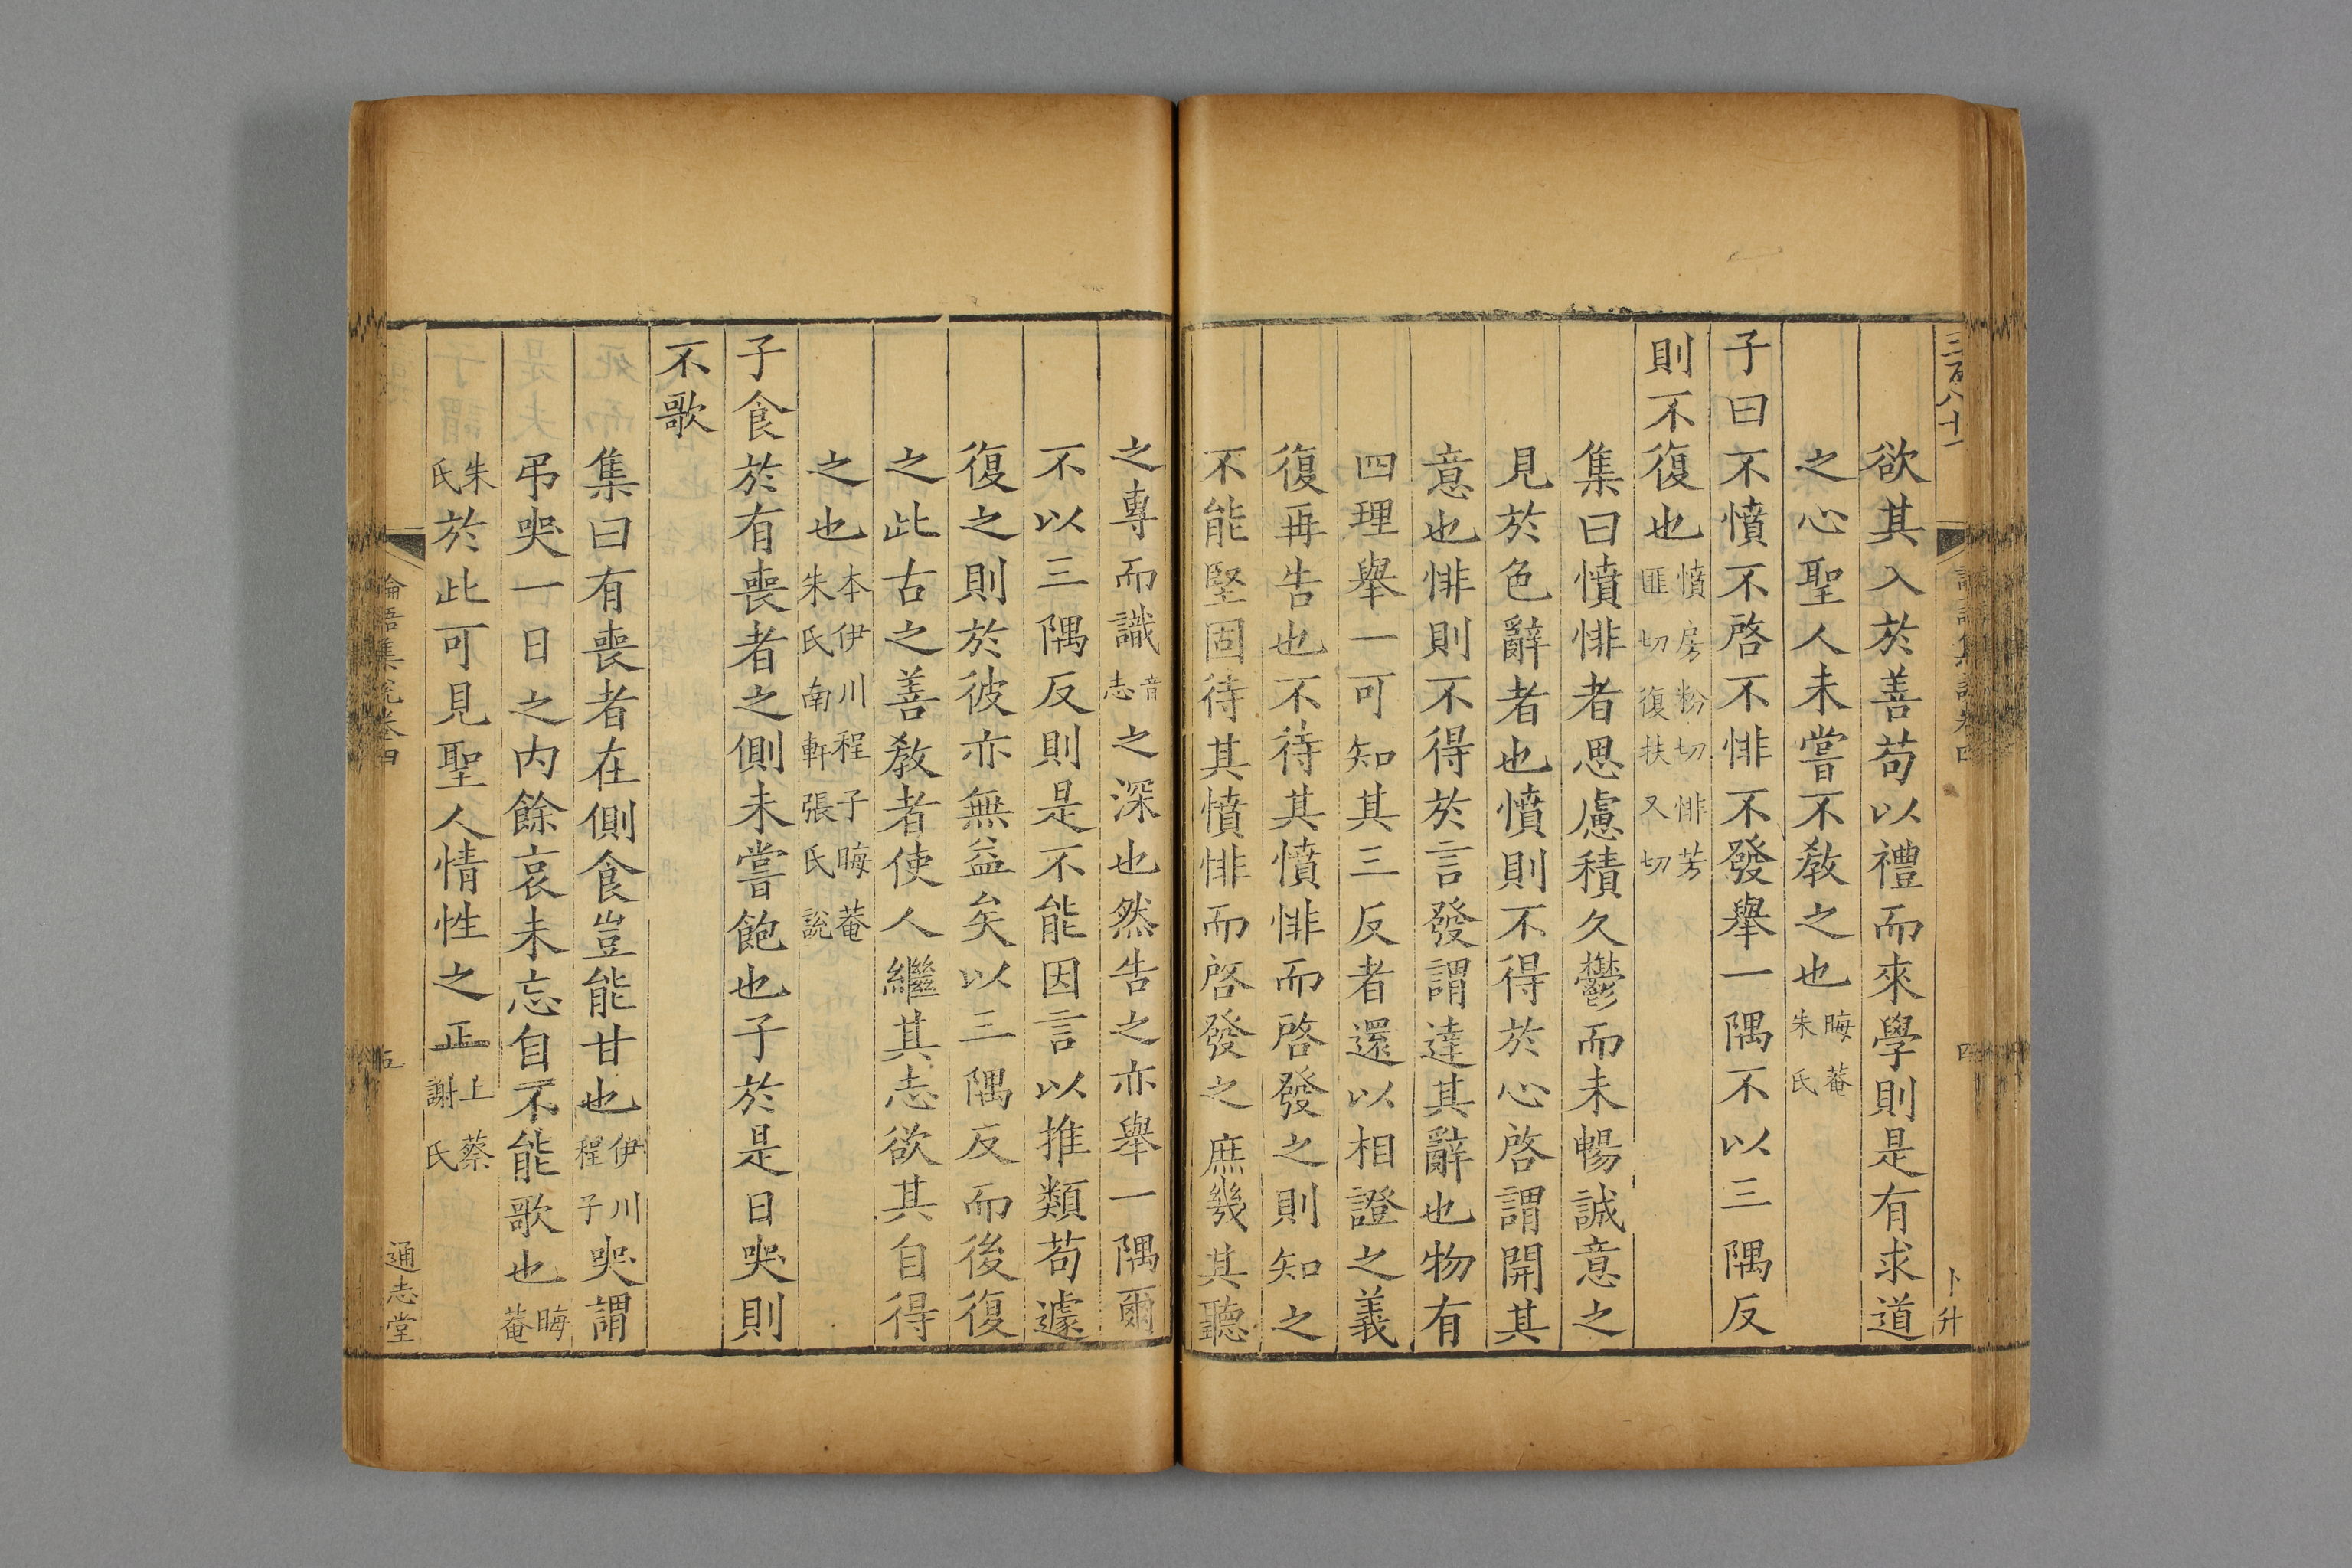 三百八十一
卜升
欲其入於善苟以禮而來學則是有求道
之心聖人未嘗不敎之也晦菴朱氏
子曰不憤不啓不悱不發舉一隅不以三隅反
則不復也憤房粉切悱芳匪切復扶又切
集曰憤悱者思慮積久鬱而未暢誠意之
見於色辭者也憤則不得於心啓謂開其
意也悱則不得於言發謂達其辭也物有
四理舉一可知其三反者還以相證之義
復再告也不待其憤悱而啓發之則知之
不能堅固待其憤悱而啓發之庶幾其聽
之專而識音志之深也然告之亦舉一隅爾
不以三隅反則是不能因言以推類苟遽
復之則於彼亦無益矣以三隅反而後復
之此古之善敎者使人繼其志欲其自得
之也本伊川程子晦菴朱氏南軒張氏說
子食於有喪者之側未嘗飽也子於是日哭則
不歌
集曰有喪者在側食豈能甘也伊川程子哭謂
弔哭一日之内餘哀未忘自不能歌也晦菴
朱氏於此可見聖人情性之正上蔡謝氏
論語集說卷四
五
通志堂